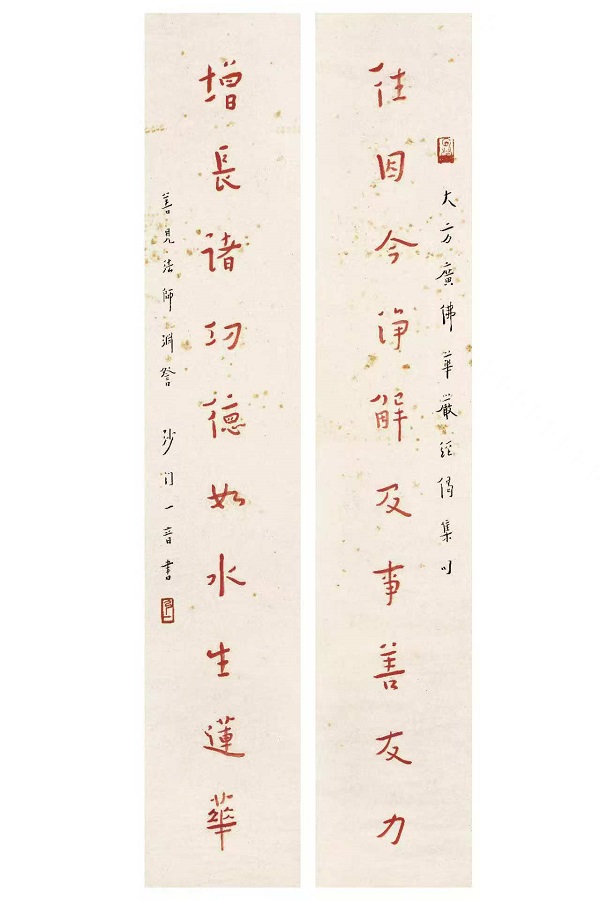 大方廣佛華嚴經偈集句
往因今淨解及事善友力
增長諸功德如水生蓮華
善見法師淵詧 沙門一音書